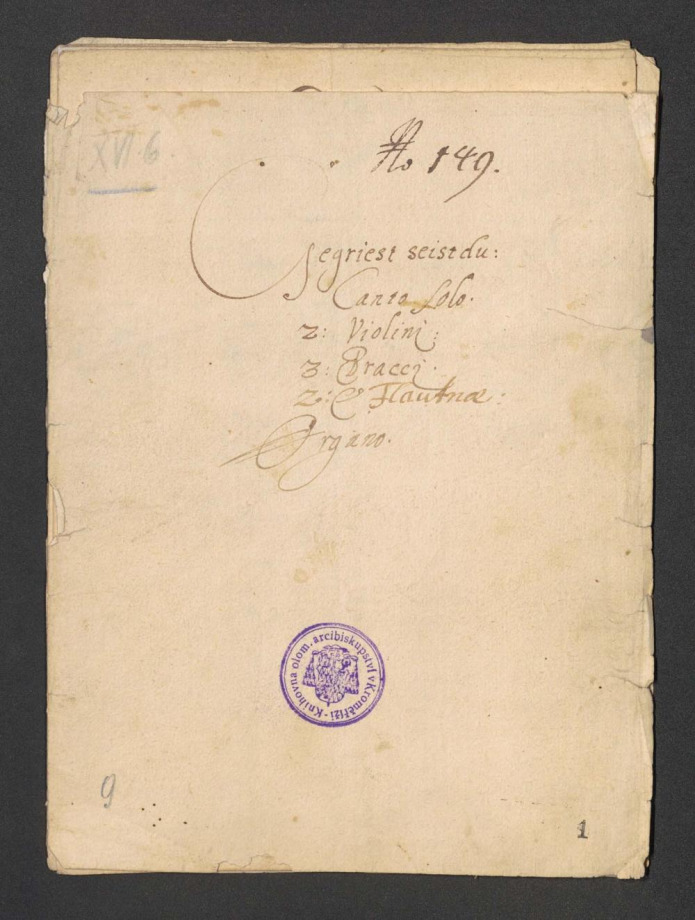 XVI. 6
No 149.
Gegriest seist du:
Canto Solo.
2: Violini:
3: Braccj.
2: & Flautnæ:
Organo.
Knihovna olom. arcibiskupství v Kroměříži
9
1